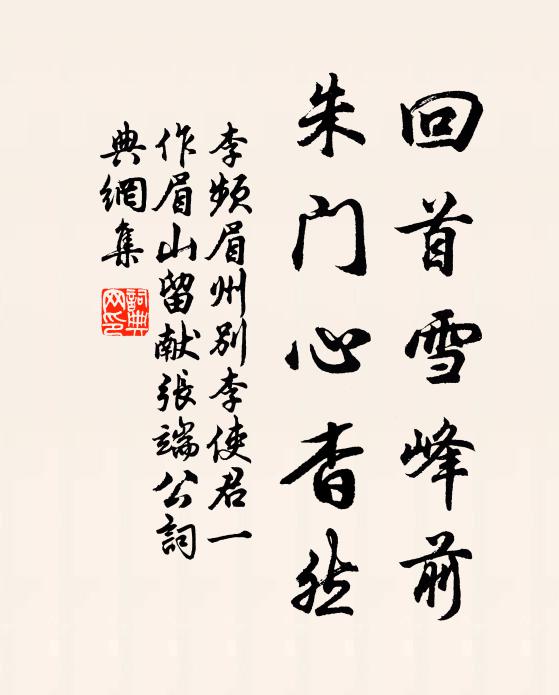 回首雪峰前
朱门心杳然
李频眉州别李使君一
作眉山留献张端公词
典網集
詞典網印